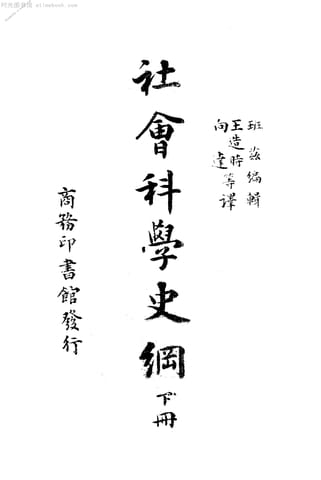 时光图书馆 sinebook.com
班茲編輯
王造時
向達等譯
社會科學史綱 下冊
商務印書館發行